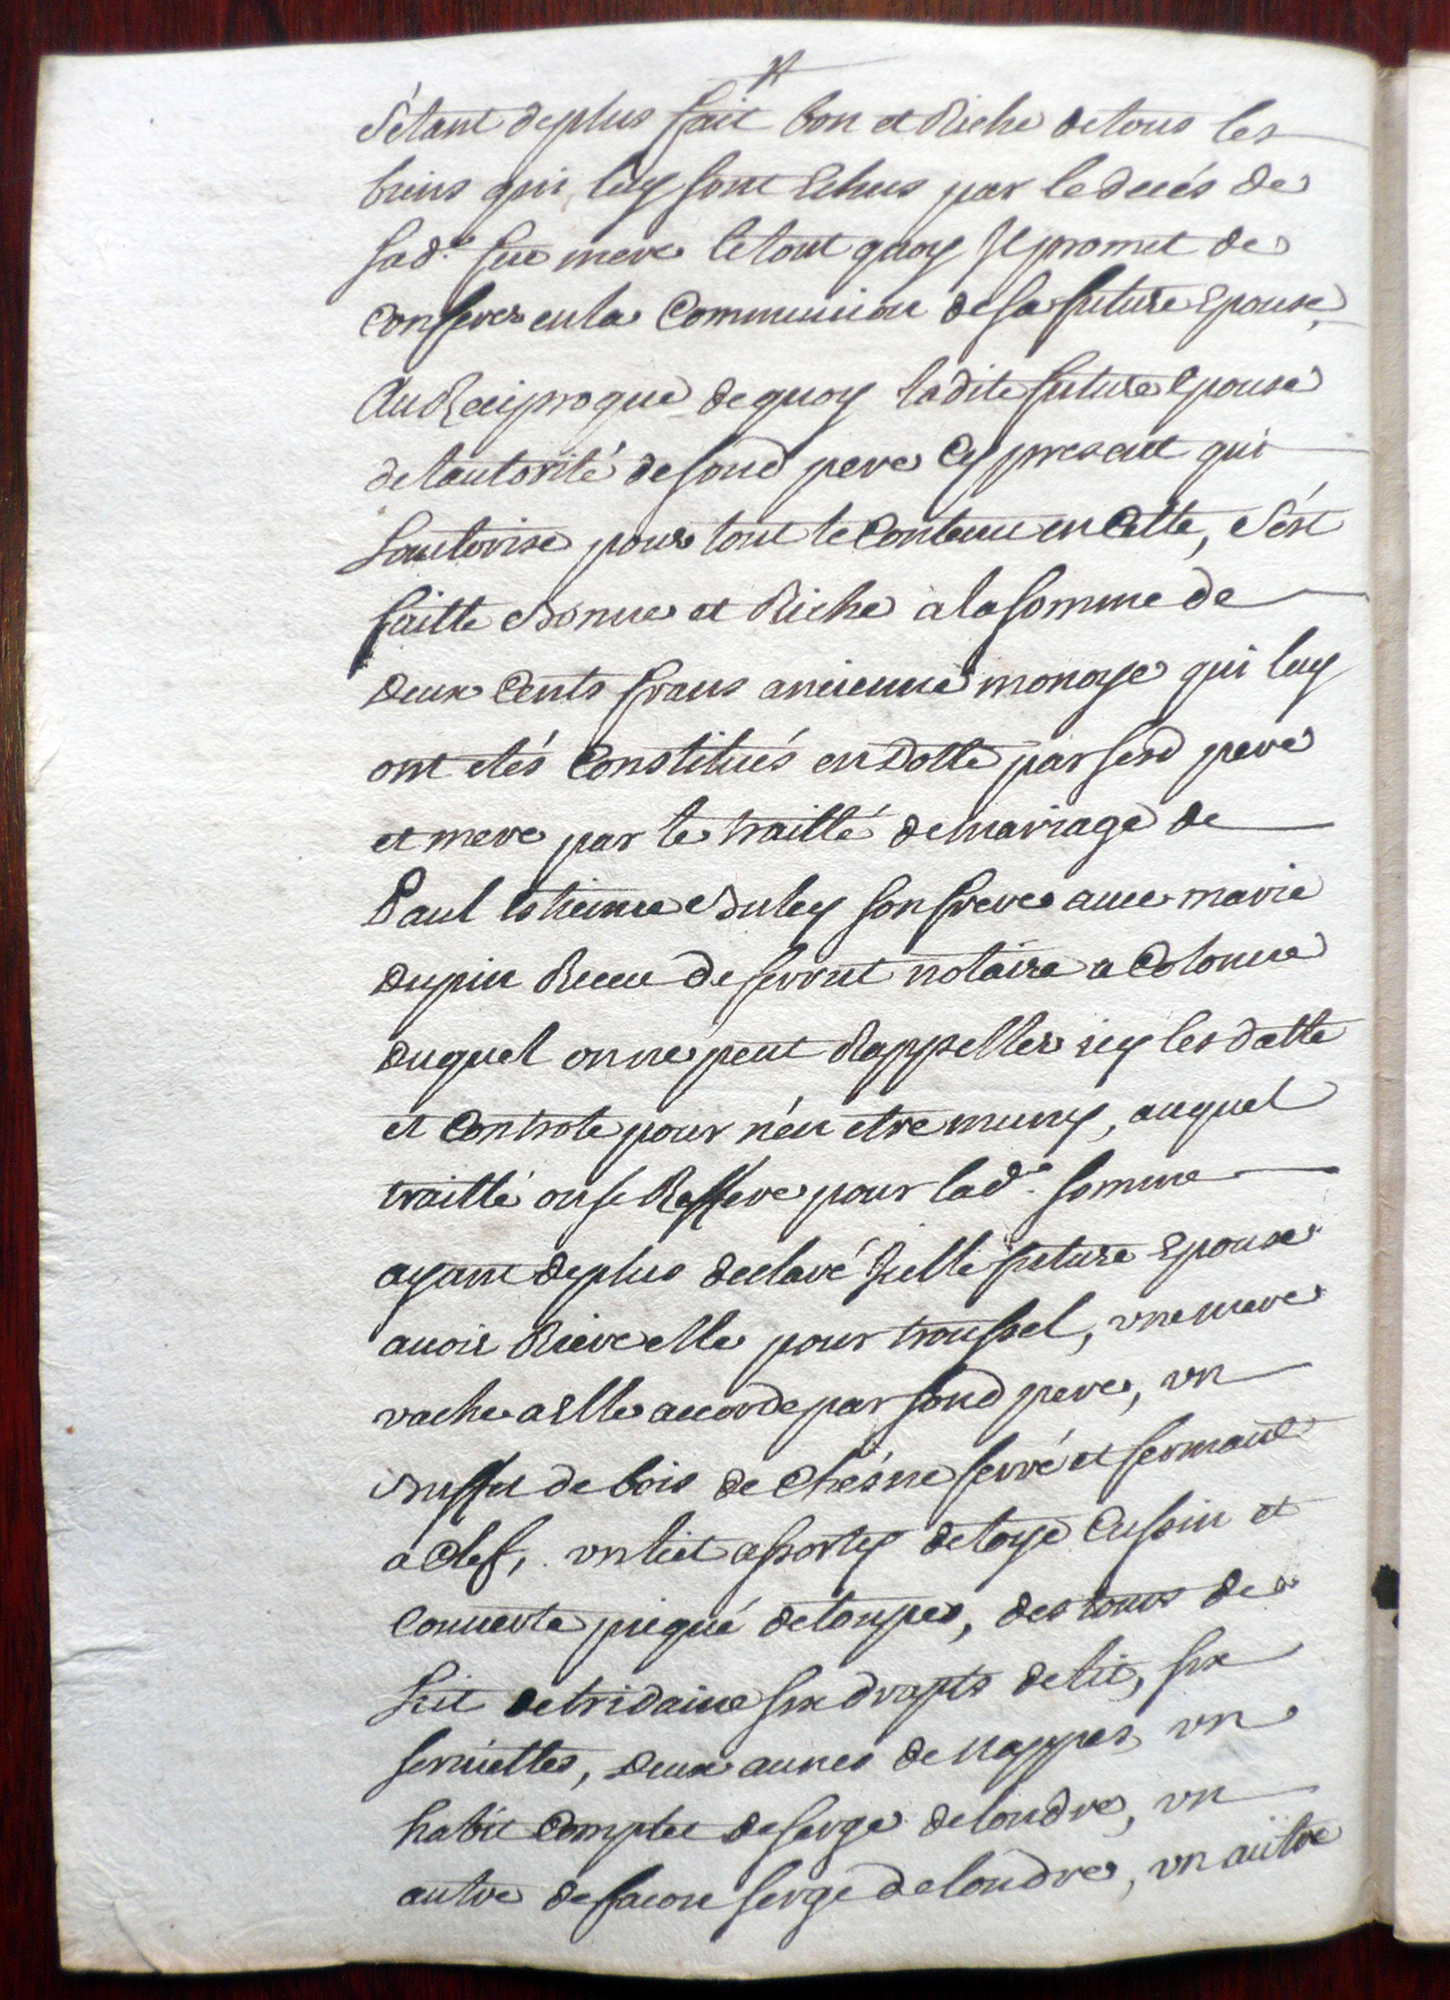 S'etant de plus fait bon et Riche de tous les
biens qui luy sont Echus par le decés de
sad.e feue mere le tout quoy Il promet de
Conferer en la Communion de sa future Epouse,
Au Reciproque de quoy ladite future Epouse
de l'autorité de sond pere Cy present qui
L'autorise pour tout le Contenu en Cette, s'est
faitte Bonne et Riche a la somme de
deux Cents frans ancienne monoye qui luy
ont etés Constitués en Dotte par sesd pere
et mere par le traitté de mariage de
Paul Etienne son frere avec marie
Dupin Receu de notaire a Colonne
Duquel on ne peut Rappeller icy les datte
et Controle pour n'en etre muny, auquel
traitté on se Reffere pour lad.e somme
ayant de plus declaré Icelle future Epouse
avoir Riere elle pour troussel, une mere
vache a Elle accordé par sond pere, un
Buffet de bois de Chesne ferré et fermant
a Clef, un lict assorty de toye Cussin et
Couverte piqué de toupes, des tours de
Lit de tridaine six drapts de lit, six
serviettes, deux aunes de nappes un
habit Complet de serge de londre, un
autre de facon serge de londre, un autre